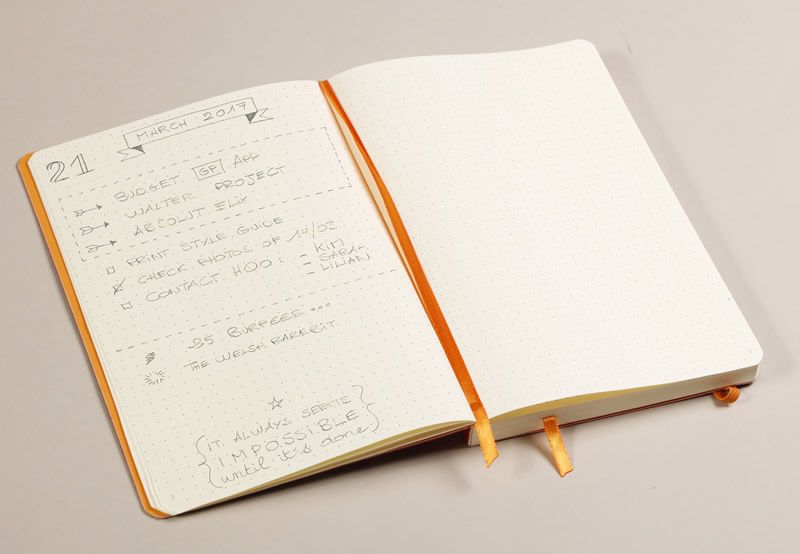 MARCH 2017
21
BUDGET GF APP
WALTER PROJECT
ABSOLUT ELIX
PRINT STYLE GUIDE
CHECK PHOTOS OF 17/03
CONTACT HOO: - KIM
- SARAH
- LILIAN.
25 BURPEES...
THE WELSH RAREBIT
IT ALWAYS SEEMS
IMPOSSIBLE
until it's done